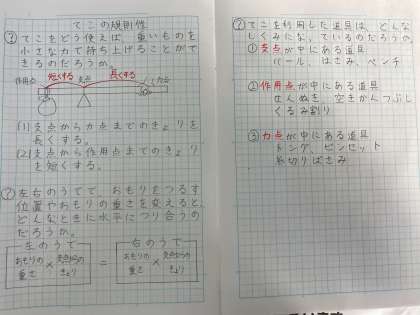 てこの規則性
？てこをどう使えば、重いものを
小さな力で持ち上げることがで
きるのだろうか。
短くする 長くする
作用点 支点 力点
(1)支点から力点までのきょりを
長くする。
(2)支点から作用点までのきょり
を短くする。
？左右のうでで、おもりをつるす
位置やおもりの重さを変えると、
どんなときに水平につり合うの
だろうか。
左のうで 右のうで
おもりの重さ × 支点からのきょり = おもりの重さ × 支点からのきょり
？てこを利用した道具は、どんな
しくみになっているのだろうか。
①支点が中にある道具
バール、はさみ、ペンチ
②作用点が中にある道具
せんぬき、空きかんつぶし
くるみ割り
③力点が中にある道具
トング、ピンセット
糸切りばさみ